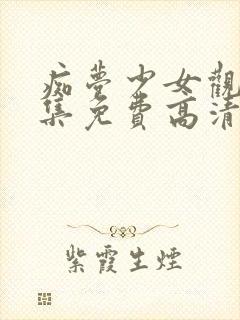 痴夢少女觀
集免費高清
紫霞生煙